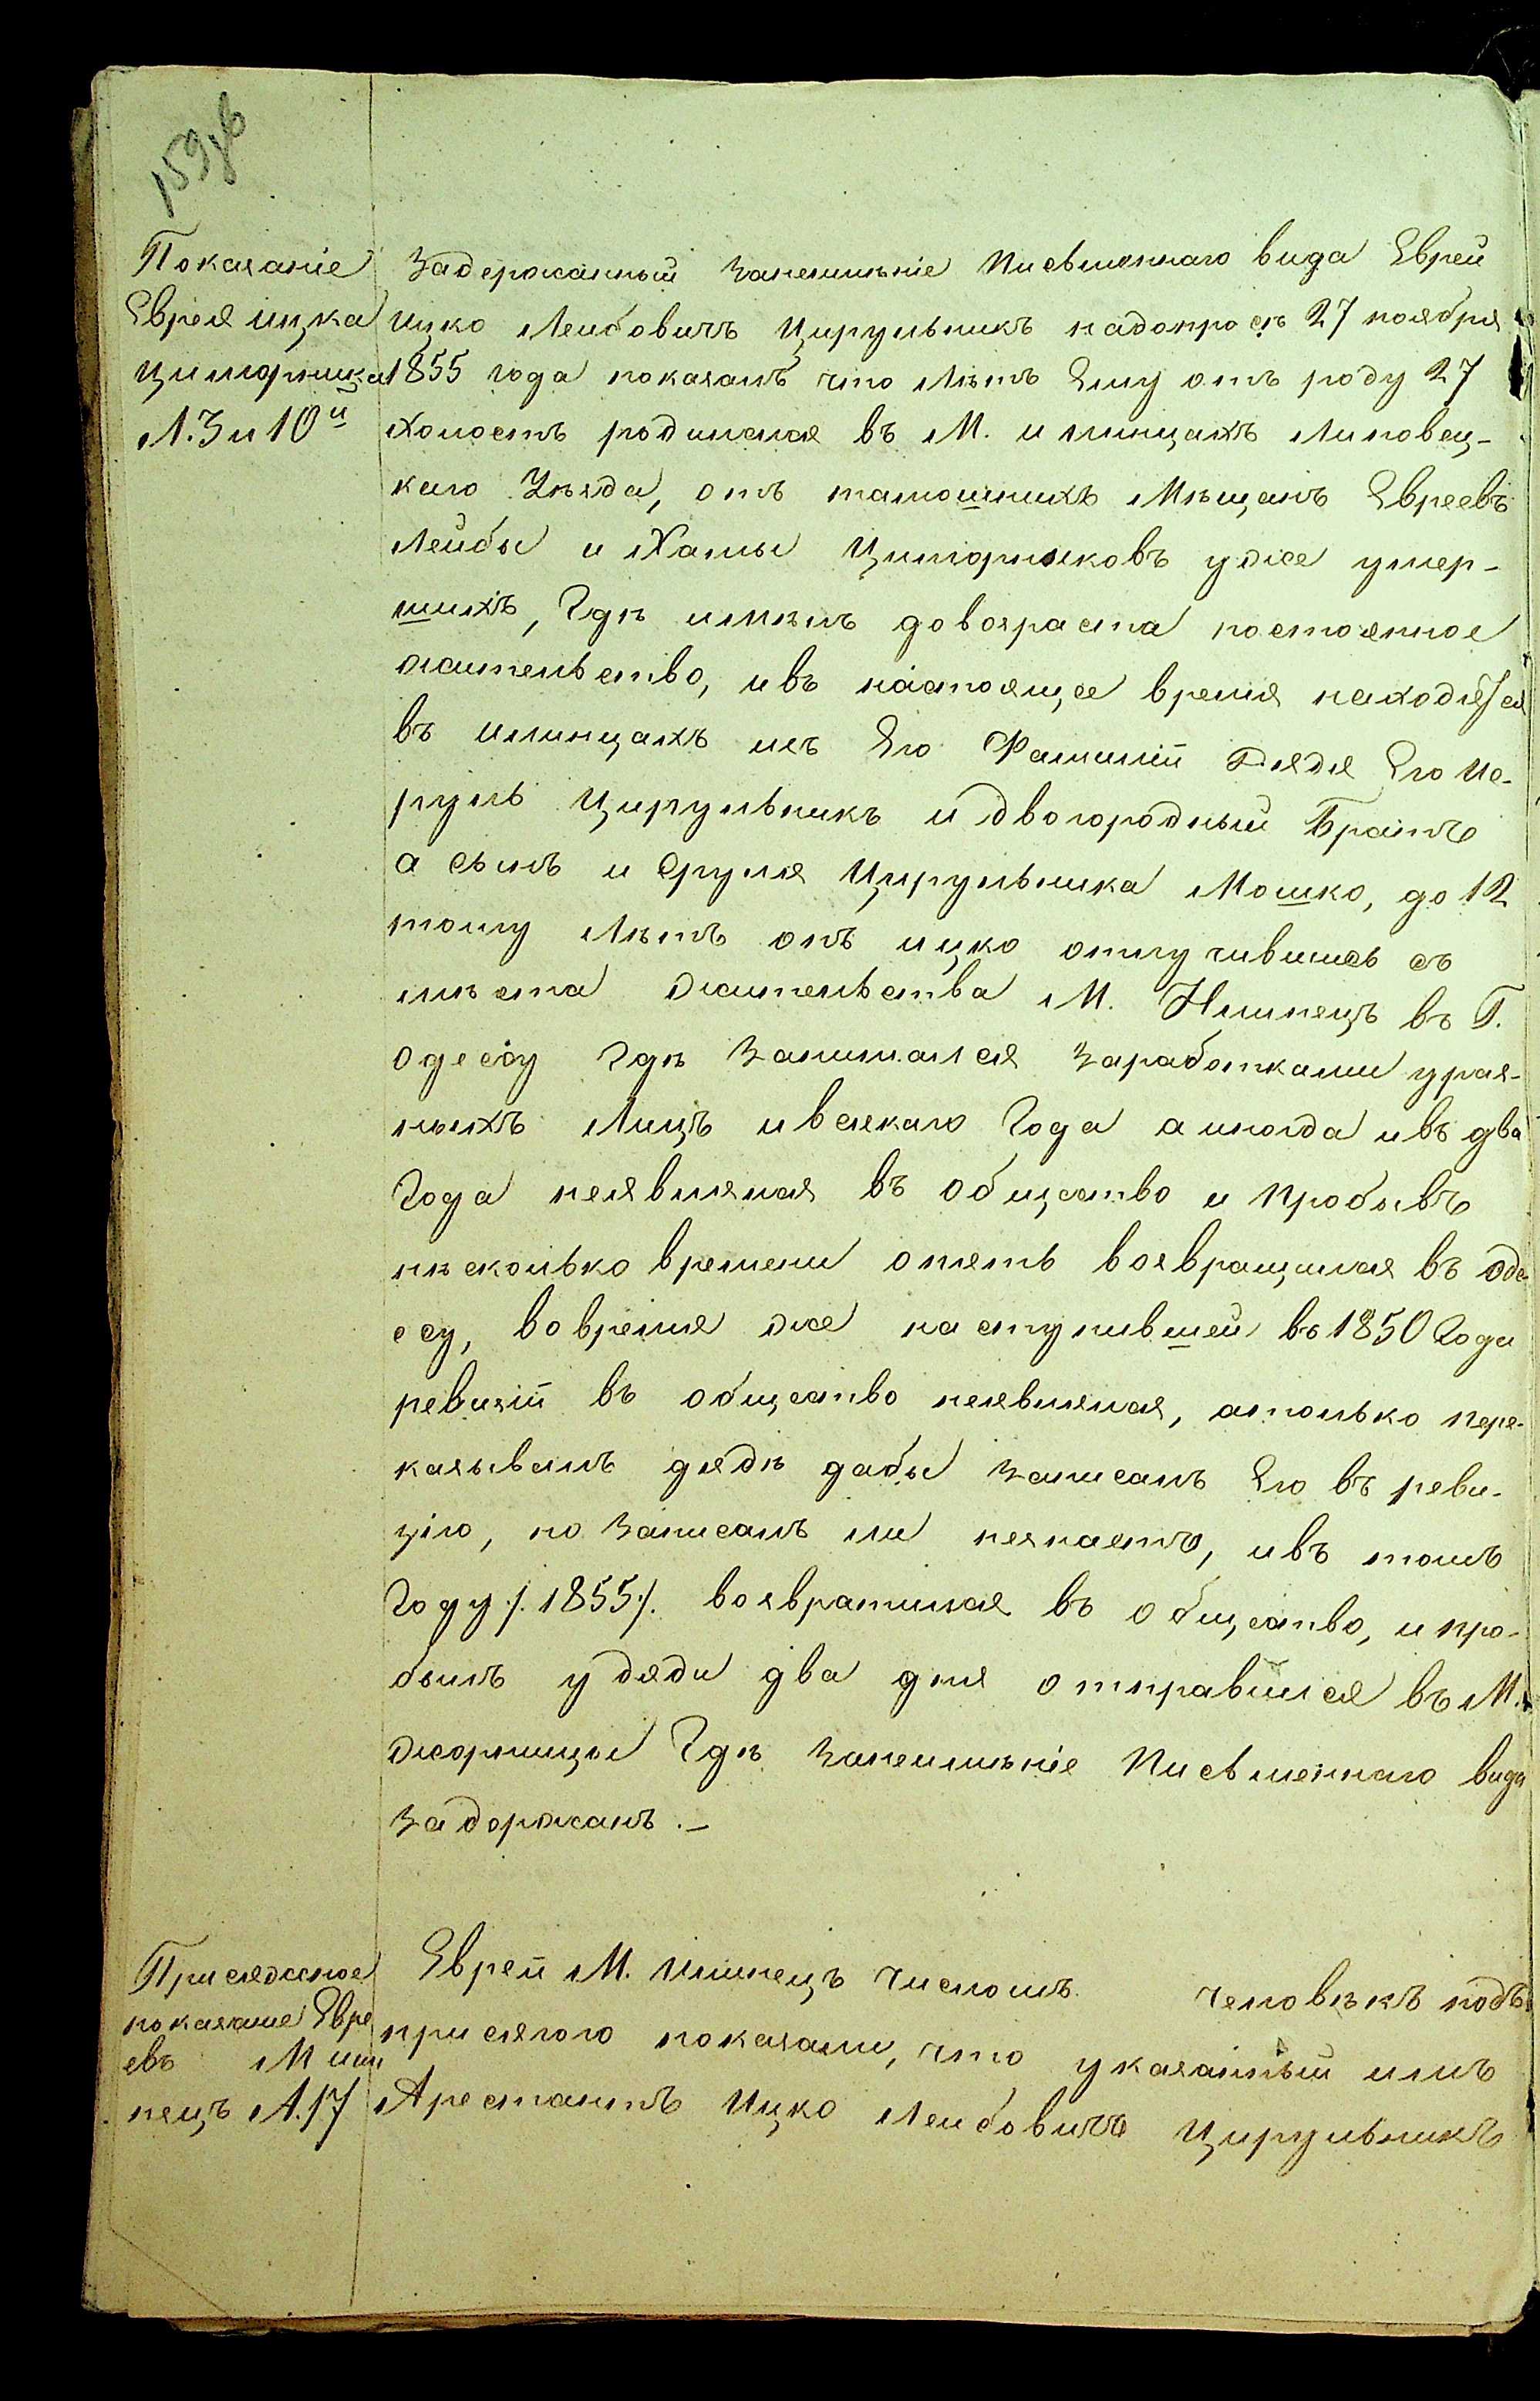 159 об
Показаніе
Еврея ицка
Цилюрника
Л. 3 и 10й
Задержанный занеимѣніе Письменнаго вида Еврей
Ицко Лейбовичъ Цирульникъ надопросъ 27 ноября
1855 года показалъ что Лѣтъ Ему отъ роду 27
Холостъ родился въ М. илинцахъ Липовец-
каго Уѣзда, отъ тамошнихъ Мѣщанъ Евреевъ
Лейбы и Ханы Цилюрниковъ уже умер-
шихъ, Гдѣ имѣлъ довозраста постоянное
жительство, ивъ настоящее время находятся
въ илинцахъ изъ Его Фамиліи Дядя Его Ис-
руль Цирульникъ и двоюродный Братъ
а сынъ и Сруля Цирульника Мошко, до 12
тому Лѣтъ онъ ицко отлучившись съ
мѣста жительства М. Илинецъ въ Г.
одессу гдѣ Занимался Заработками ураз-
ныхъ Лицъ ивсякаго Года а иногда ивъ два
Года неявлялся въ общество и Пробывъ
нѣсколько времени опять возвращался въ оде
ссу, вовремя же наступившей въ 1850 Года
ревизіи въ общество неявлялся, атолько пере-
казывалъ дядѣ дабы Записалъ Его въ реви-
зію, но Записалъ ли незнаетъ, ивъ томъ
Году /. 1855 /. возвратился въ общество, и про-
былъ у дяди два дня отправился въ М.
жорнище Гдѣ занеимѣніе Письменнаго вида
Задержанъ. –
Присяжное
показаніе Евре
евъ М или
нецъ Л. 17
Евреи М. Илинецъ числомъ человѣкъ подъ
присягою показали, что указанный имъ
Арестантъ Ицко Лейбовичъ Цирульникъ